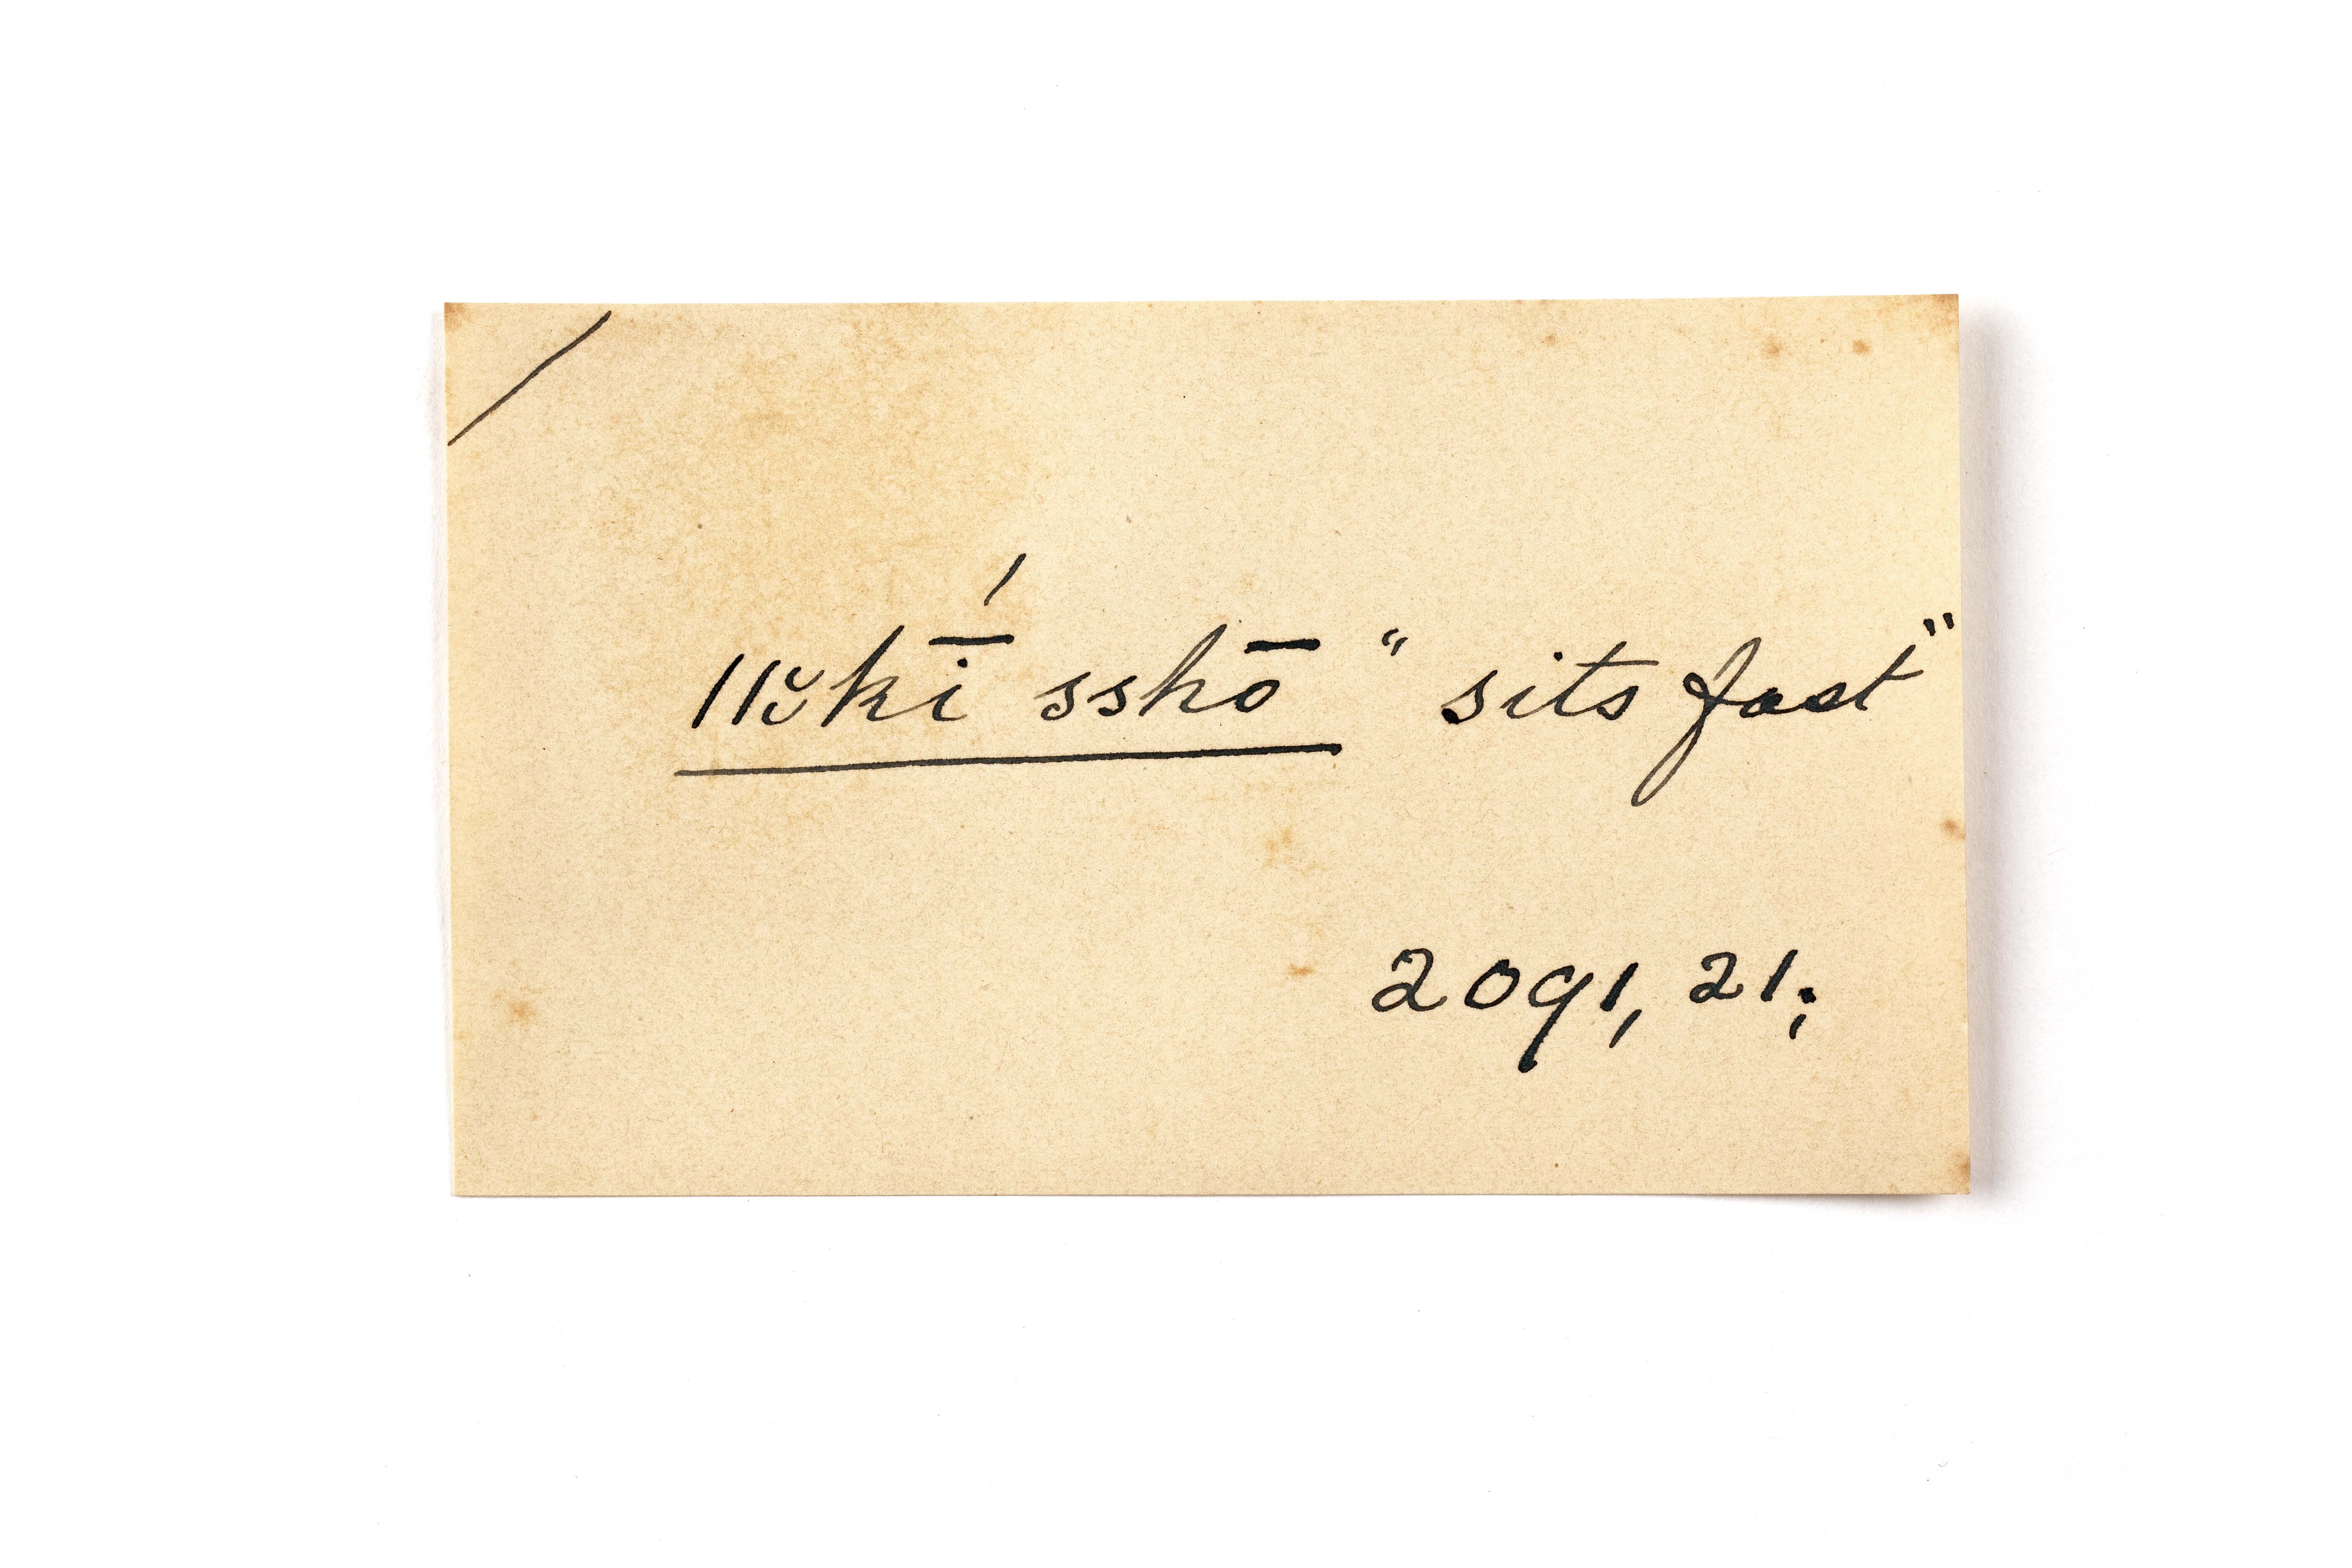 ǁŏkī́ sshō “sits fast”
2091, 21;